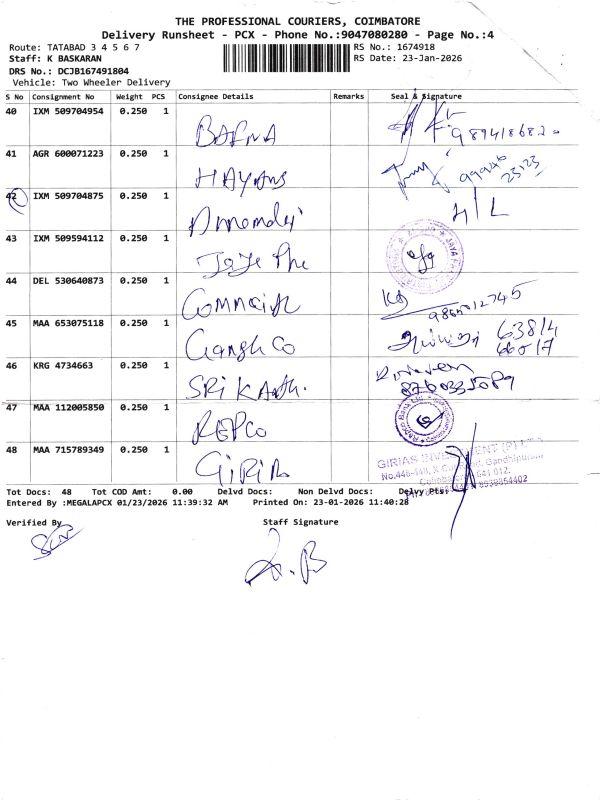 THE PROFESSIONAL COURIERS, COIMBATORE
Delivery Runsheet - PCX - Phone No.:9047080280 - Page No.:4
Route: TATABAD 3 4 5 6 7
RS No.: 1674918
Staff: K BASKARAN
RS Date: 23-Jan-2026
DRS No.: DCJB167491804
Vehicle: Two Wheeler Delivery
S No Consignment No Weight PCS Consignee Details Remarks Seal & Signature
40 IXM 509704954 0.250 1 BAFNA
41 AGR 600071223 0.250 1 HAYANS 99946 23123
42 IXM 509704875 0.250 1 H/L
43 IXM 509594112 0.250 1
44 DEL 530640873 0.250 1
45 MAA 653075118 0.250 1 Ganga Co
46 KRG 4734663 0.250 1 SRi KAnth.
47 MAA 112005850 0.250 1 REPCo
48 MAA 715789349 0.250 1 GiRiA
GIRIAS INVESTMENT (P) LTD
Tot Docs: 48 Tot COD Amt: 0.00 Delvd Docs: Non Delvd Docs: Delvy Pts:
Entered By :MEGALAPCX 01/23/2026 11:39:32 AM Printed On: 23-01-2026 11:40:28
Verified By Staff Signature
K.B